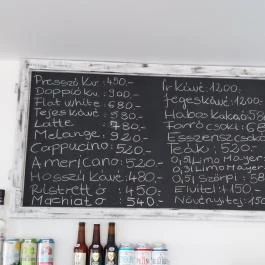 Presszó Káv :450,-
Doppió Kv. :900,-
Flat white :680,-
Tejeskávé :580,-
Latte :780,-
Melange :920,-
Cappucino :520,-
Americano :520,-
Hosszú Kávé :480,-
Ristrettó :450,-
Machiató 540,-
Írkávé :1200,-
Jegeskávé :1200,-
Habos kakaó
Forró csoki :68
Esszenz csoki
Teák : 520,-
0,5l Limo Mayer
0,3l Limo Mayer
0,5l Szörpi :58
Elvitel :+150,-
Növényitej :150